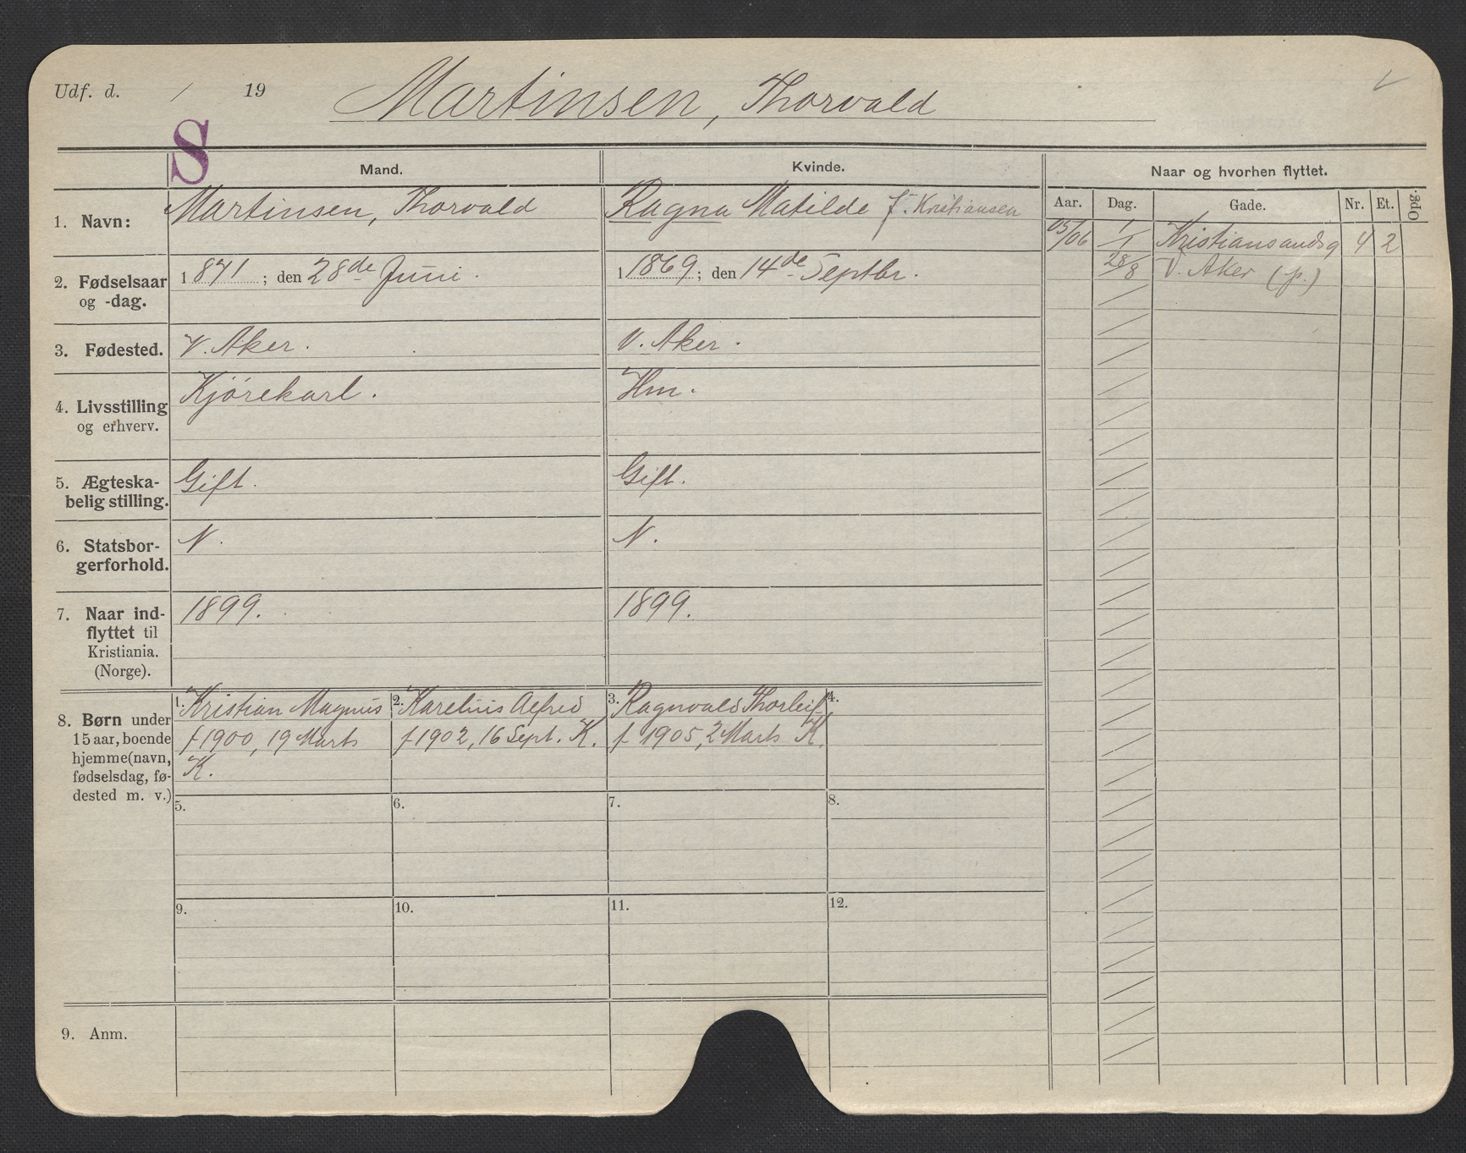 Udf. d. / 19
Martinsen, Thorvald
S
Mand.
Kvinde.
Naar og hvorhen flyttet.
Aar. Dag. Gade. Nr. Et. Opg.
1. Navn: Martinsen, Thorvald
Ragna Matilde f. Kristiansen
05/06 1/1 Kristiansandsg 4 2
28/8 V. Aker (p.)
2. Fødselsaar og -dag.
1871; den 28de Juni.
11869; den 14de Septbr.
3. Fødested. V. Aker.
V. Aker.
4. Livsstilling og erhverv.
Kjørekarl.
Hm.
5. Ægteska-
belig stilling.
Gift.
Gift.
6. Statsbor-
gerforhold.
N.
N.
7. Naar ind-
flyttet til
Kristiania.
(Norge).
1899.
1899.
8. Børn under
15 aar, boende
hjemme (navn,
fødselsdag, fø-
dested m. v.)
1. Kristian Magnus
f 1900, 19 Marts
K.
2. Karelius Alfred
f 1902, 16 Sept. K.
3. Ragnvald Thorleif
f 1905, 2 Marts K.
4.
5.
6.
7.
8.
9.
10.
11.
12.
9. Anm.